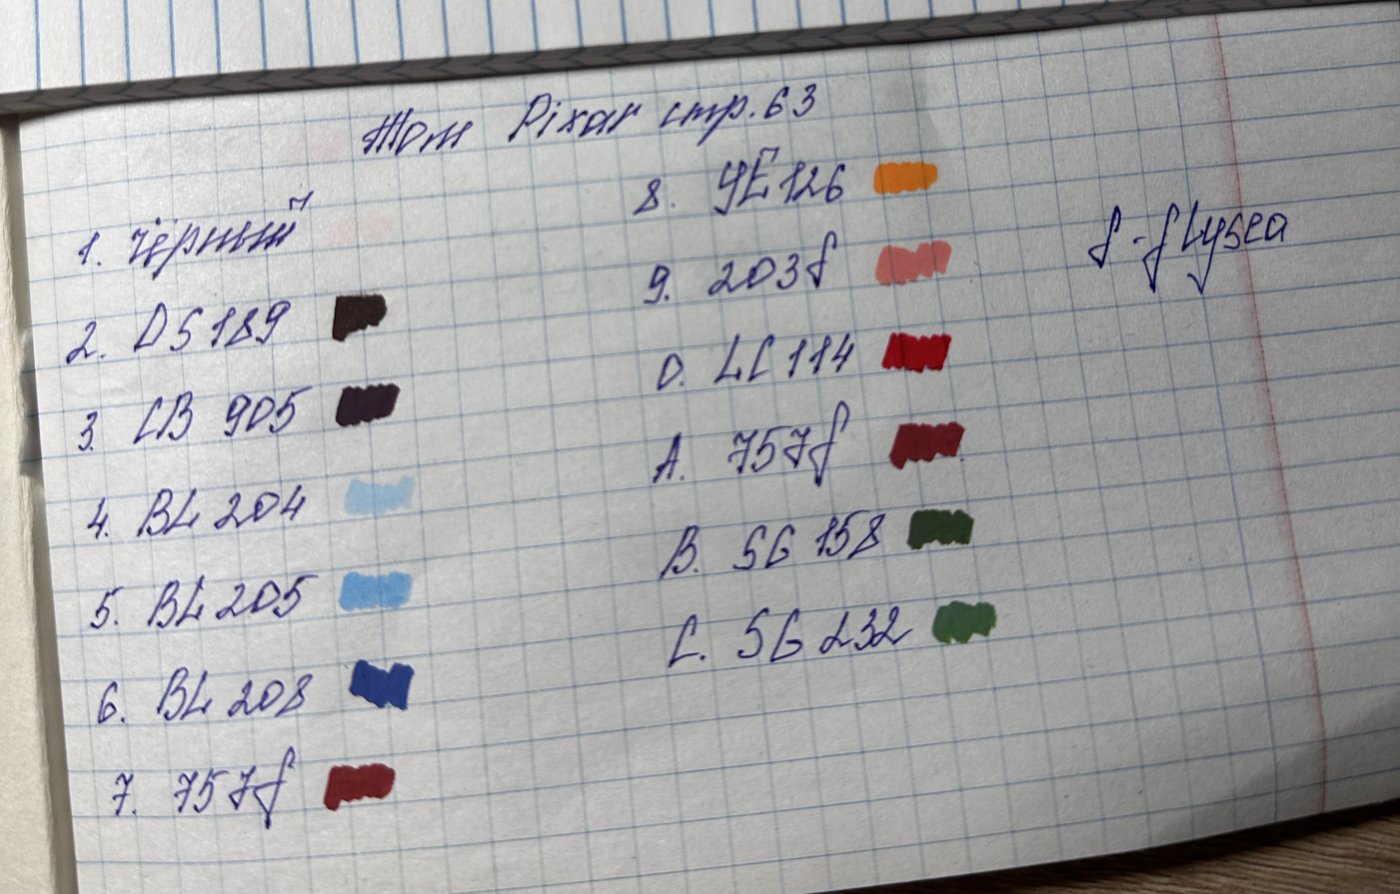 Том Pixar стр. 63
1. Чёрный
2. DS 189
3. CB 905
4. BL 204
5. BL 205
6. BL 208
7. 757f
8. YE 126
9. 203f
0. LC 114
A. 757f
B. SG 158
C. SG 232
f - flysea